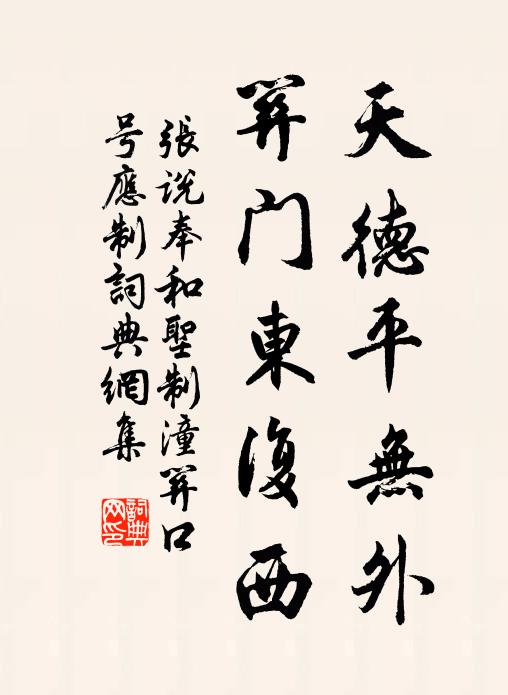 天德平無外
關門東復西
張説奉和聖制潼關口
号應制詞典網集
詞典网印